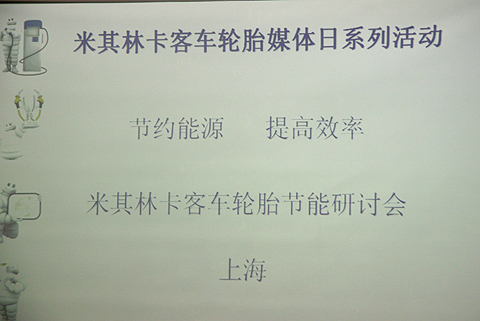 米其林卡客车轮胎媒体日系列活动
节约能源 提高效率
米其林卡客车轮胎节能研讨会
上海